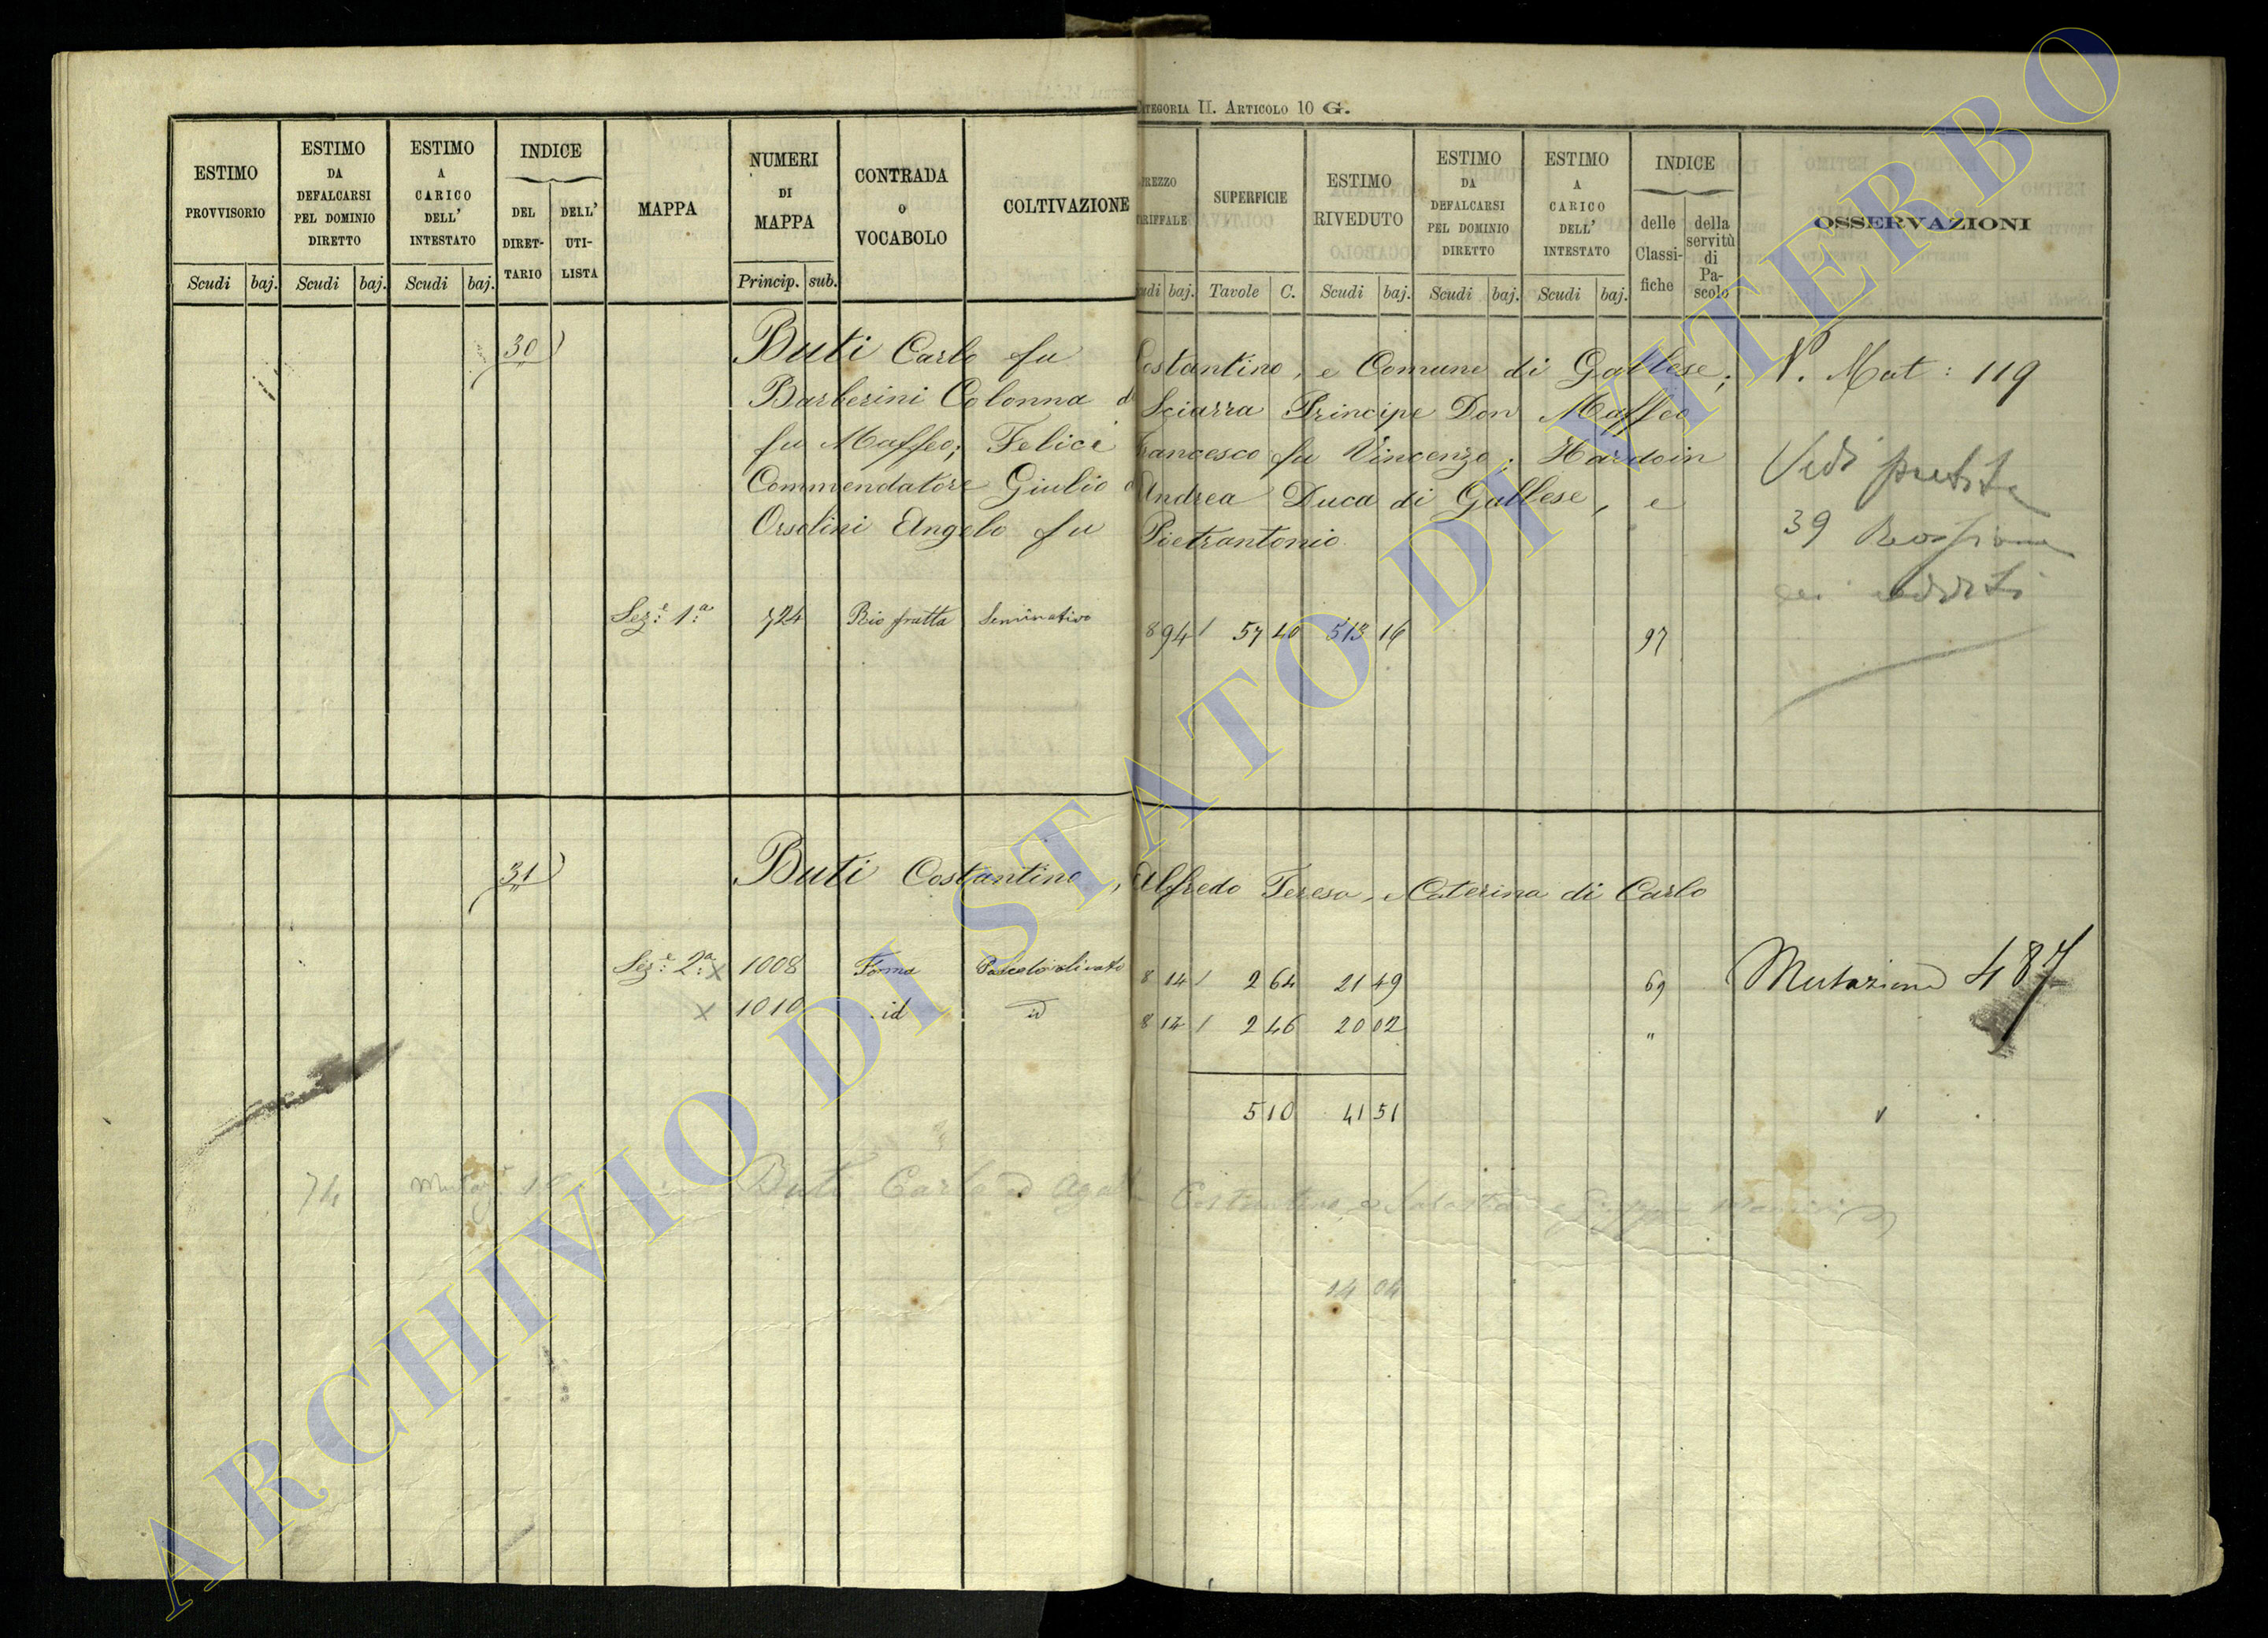 CATEGORIA II. ARTICOLO 10 G.
ESTIMO PROVVISORIO
Scudi baj.
ESTIMO DA DEFALCARSI PEL DOMINIO DIRETTO
Scudi baj.
ESTIMO A CARICO DELL' INTESTATO
Scudi baj.
INDICE
DEL DIRET-TARIO
DELL' UTI-LISTA
MAPPA
NUMERI DI MAPPA
Princip. sub.
CONTRADA o VOCABOLO
COLTIVAZIONE
PREZZO
baj.
SUPERFICIE
Tavole C.
ESTIMO RIVEDUTO
Scudi baj.
ESTIMO DA DEFALCARSI PEL DOMINIO DIRETTO
Scudi baj.
ESTIMO A CARICO DELL' INTESTATO
Scudi baj.
INDICE
delle Classi-fiche
della servitù di Pa-scolo
OSSERVAZIONI
30 Buti Carlo fu Costantino, e Comune di Gallese; N. Mat: 119
Barberini Colonna di Sciarra Principe Don Maffeo
fu Maffeo; Felici Francesco fu Vincenzo; Hardoin
Commendatore Giulio d' Andrea Duca di Gallese, e
Orsolini Angelo fu Pietrantonio.
Vedi partita
39
Sez.e 1.a 724 Rio fratta Seminativo 8 94 1 57 40 513 16 97
31 Buti Costantino, Alfredo Teresa, e Caterina di Carlo
Sez.e 2.a x 1008 Pascolo olivato 8 14 1 2 64 21 49 69 Mutazione 487
x 1010 id id 8 14 1 2 46 20 02 "
5 10 41 51
74 Buti Carlo
14 04
ARCHIVIO DI STATO DI VITERBO